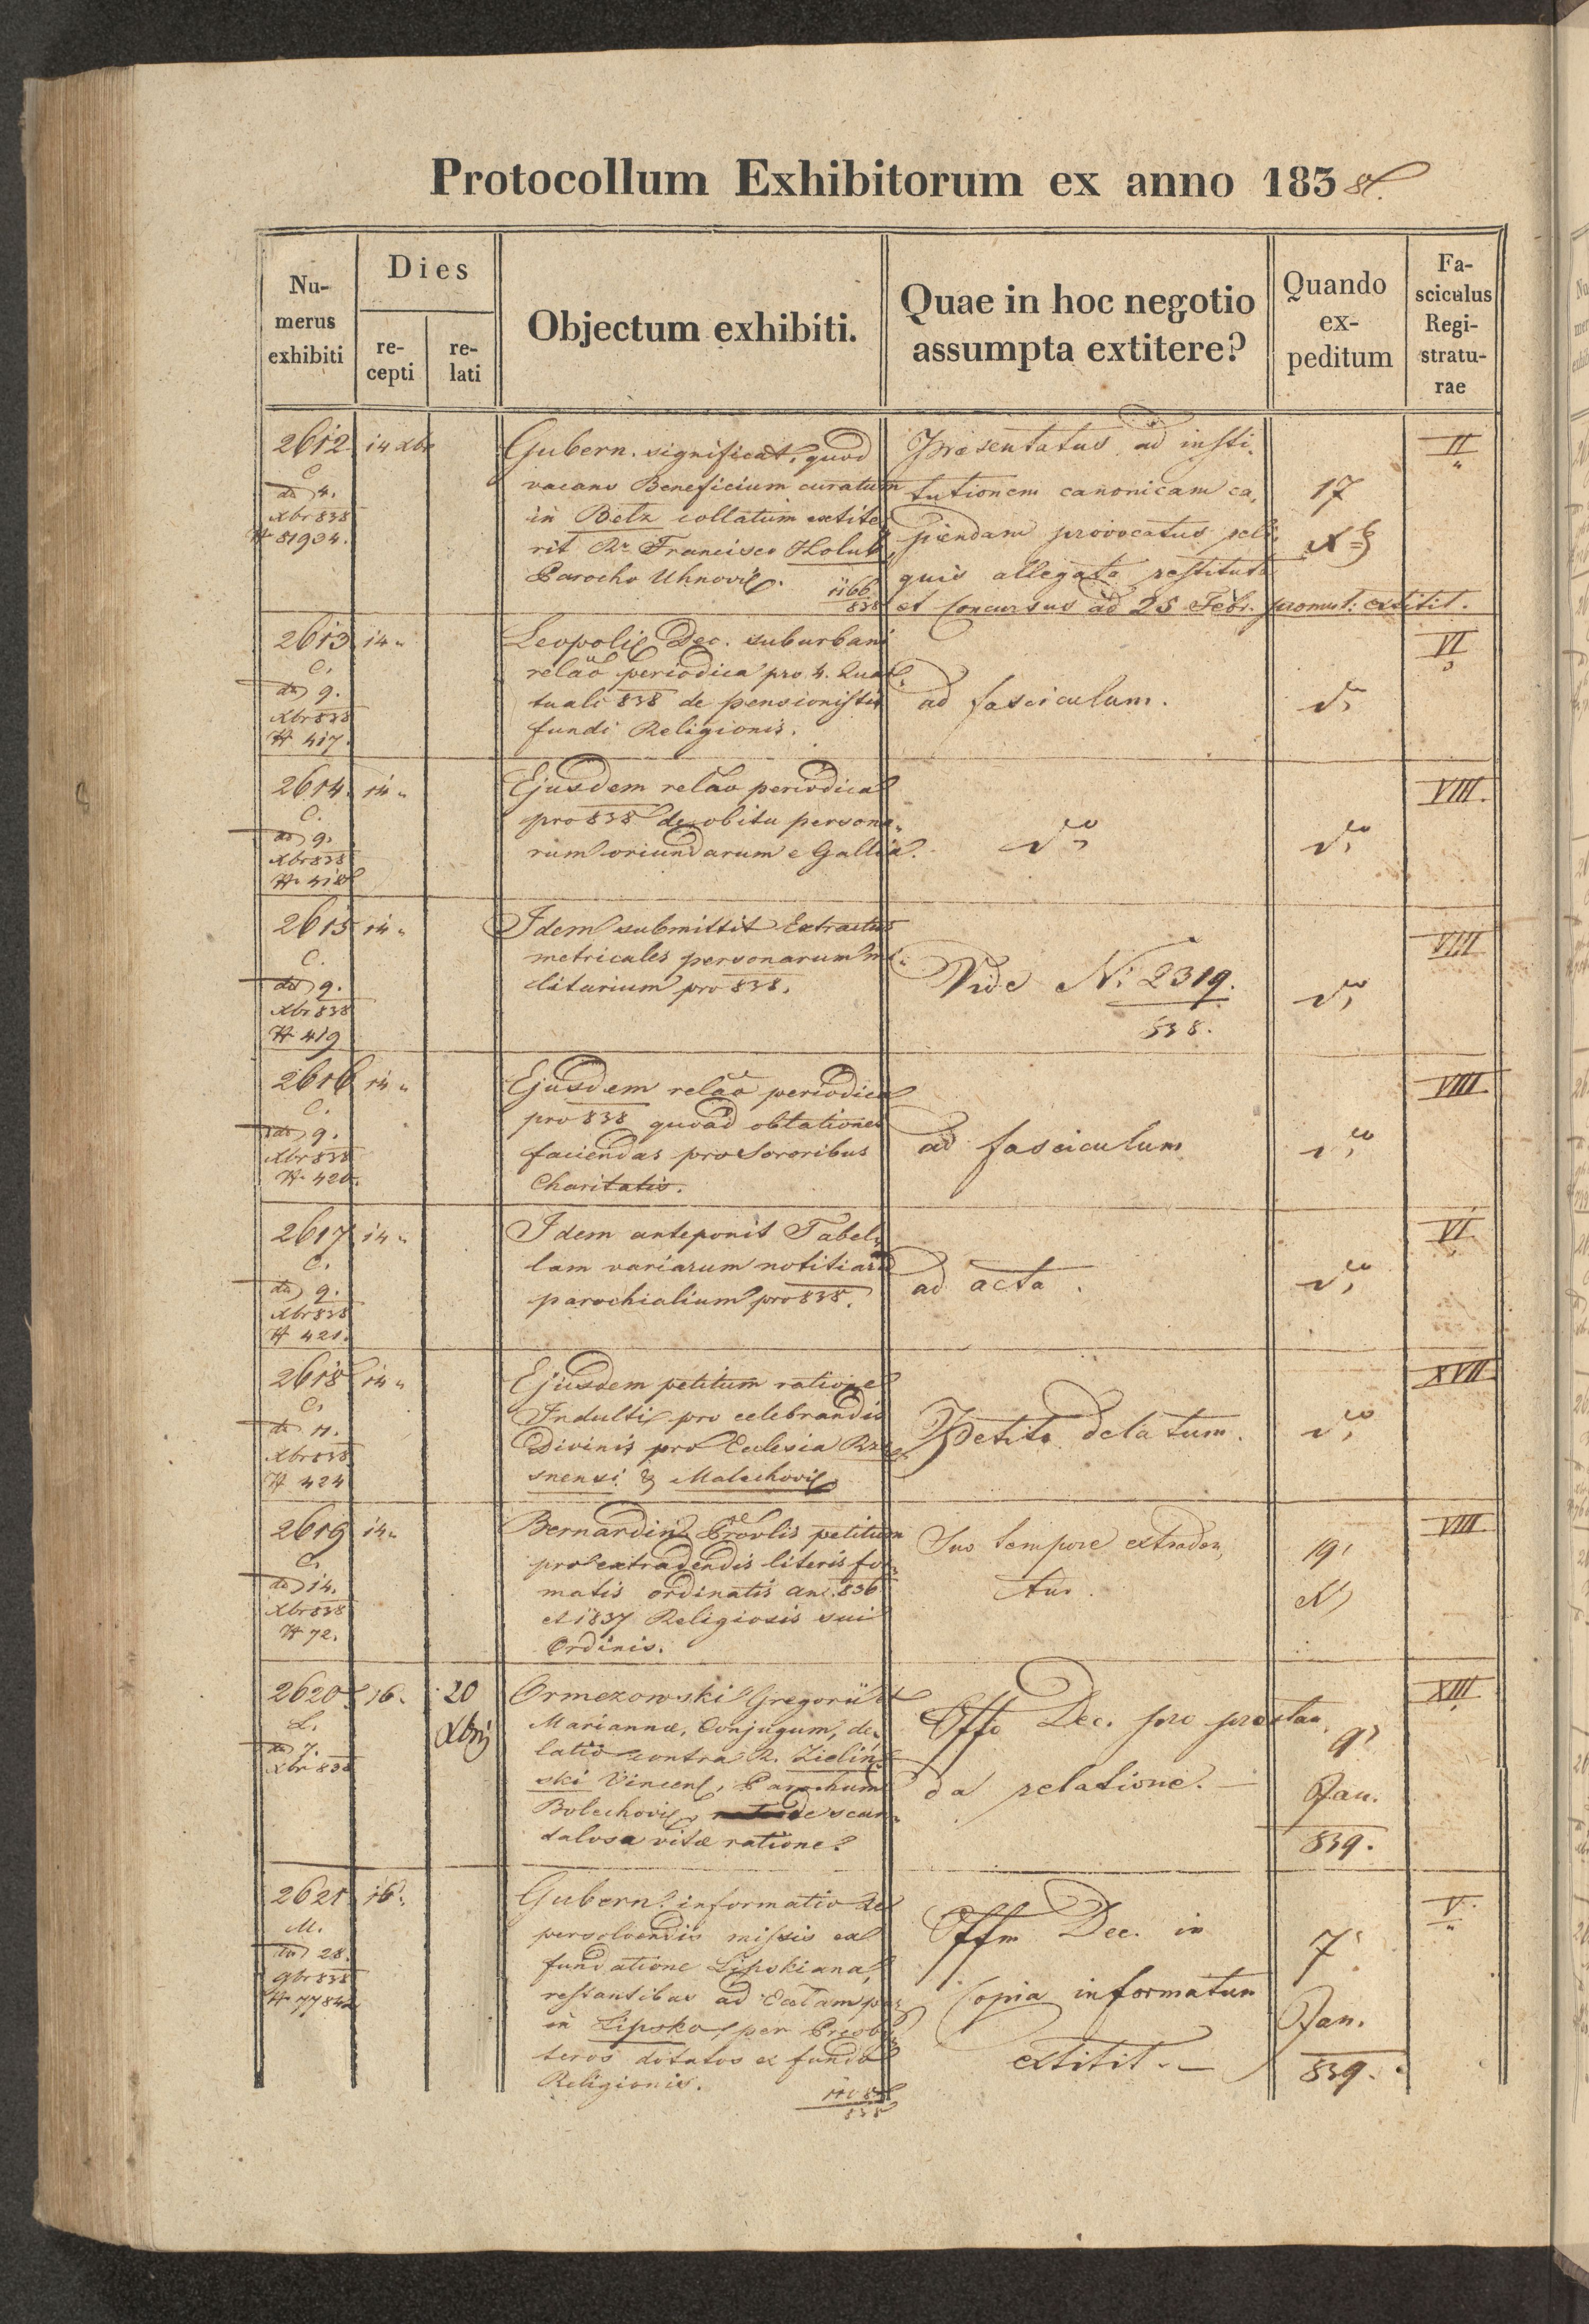 Protocollum Exhibitorum ex anno 1838.
Nu-
merus
exhibiti
Dies
re-
cepti
re-
lati
Objectum exhibiti.
Quae in hoc negotio
assumpta extitere?
Quando
ex-
peditum
Fa-
sciculus
Regi-
stratu-
rae
2612
C
dd 4.
Xbr 838
N 81934.
14 Xbr
Gubern. significat, quod
vacans Beneficium curatum
in Belz collatum extite,
rit Rr. Francisco Holub,
Parocho Uhnovi.
1166
838
Praesentatus ad insti,
tutionem canonicam ca,
piendam provocatus reli,
quis allegata restituta
et Concursus ad 25 Febr. promul: extitit.
17
X
II
2613
C.
dd 9.
Xbr 838
N 417.
14 "
Leopoli Dec. suburbani
relão periodica pro 4. Quar,
tuali 838 de pensionistis
fundi Religionis.
ad fasciculum.
VI
2614.
C.
dd 9.
Xbr 838
N. 418
14 "
Ejusdem relão periodica
pro 838 de obitu persona,
rum oriundarum e Gallia.
dto
dto
VIII.
2615
C.
dd 9.
Xbr 838
N 419
14 "
Idem submittit Extractus
metricales personarum mi,
litarium pro 838.
Vide N: 2319.
838.
dto
VIII
2616
C.
dd 9.
Xbr 838
N. 420.
14 "
Ejusdem relão periodica
pro 838 quoad oblationes
faciendas pro Sororibus
Charitatis.
ad fasciculum
dto
VIII
2617
C.
dd 9.
Xbr 838
N 421.
14 "
Idem anteponit Tabel,
lam variarum notitiarum
parochialium pro 838.
ad acta.
dto
VI
2618
C.
dd 11.
Xbr 838
N 424
14 "
Ejusdem petitum ratione
Indulti pro celebrandis
Divinis pro Ecclesia Rzę
snensi & Malechovi
Petito delatum.
dto
XVII
2619
C.
dd 14.
Xbr 838
N 72.
14 "
Bernardin. Provlis petitum
pro extradendis literis for,
matis ordinatis an. 836
et 1837 Religiosis sui
Ordinis.
Suo tempore extraden,
tur.
19
X
VIII
2620
L.
dd 7.
Xbr 838
16.
20
Xbris
Ormezowski Gregorii et
Mariannae, Conjugum, de,
latio contra R. Zielin,
ski Vincen, Parochum
Bolechovi, de scan,
dalosa vitae ratione.
Offo Dec. pro praestan,
da relatione. —
9
Jan.
839.
XIII
2621
M.
dd 28.
9br 838
N 77842
16.
Gubern. informatio de
persolvendis missis ex
fundatione Lipskiana,
restantibus ad Ecclam par
in Lipsko, per Presby
teros dotatos ex fundo
Religionis.
838
Offm Dec. in
Copia informatum
extitit. —
7
Jan.
839.
V